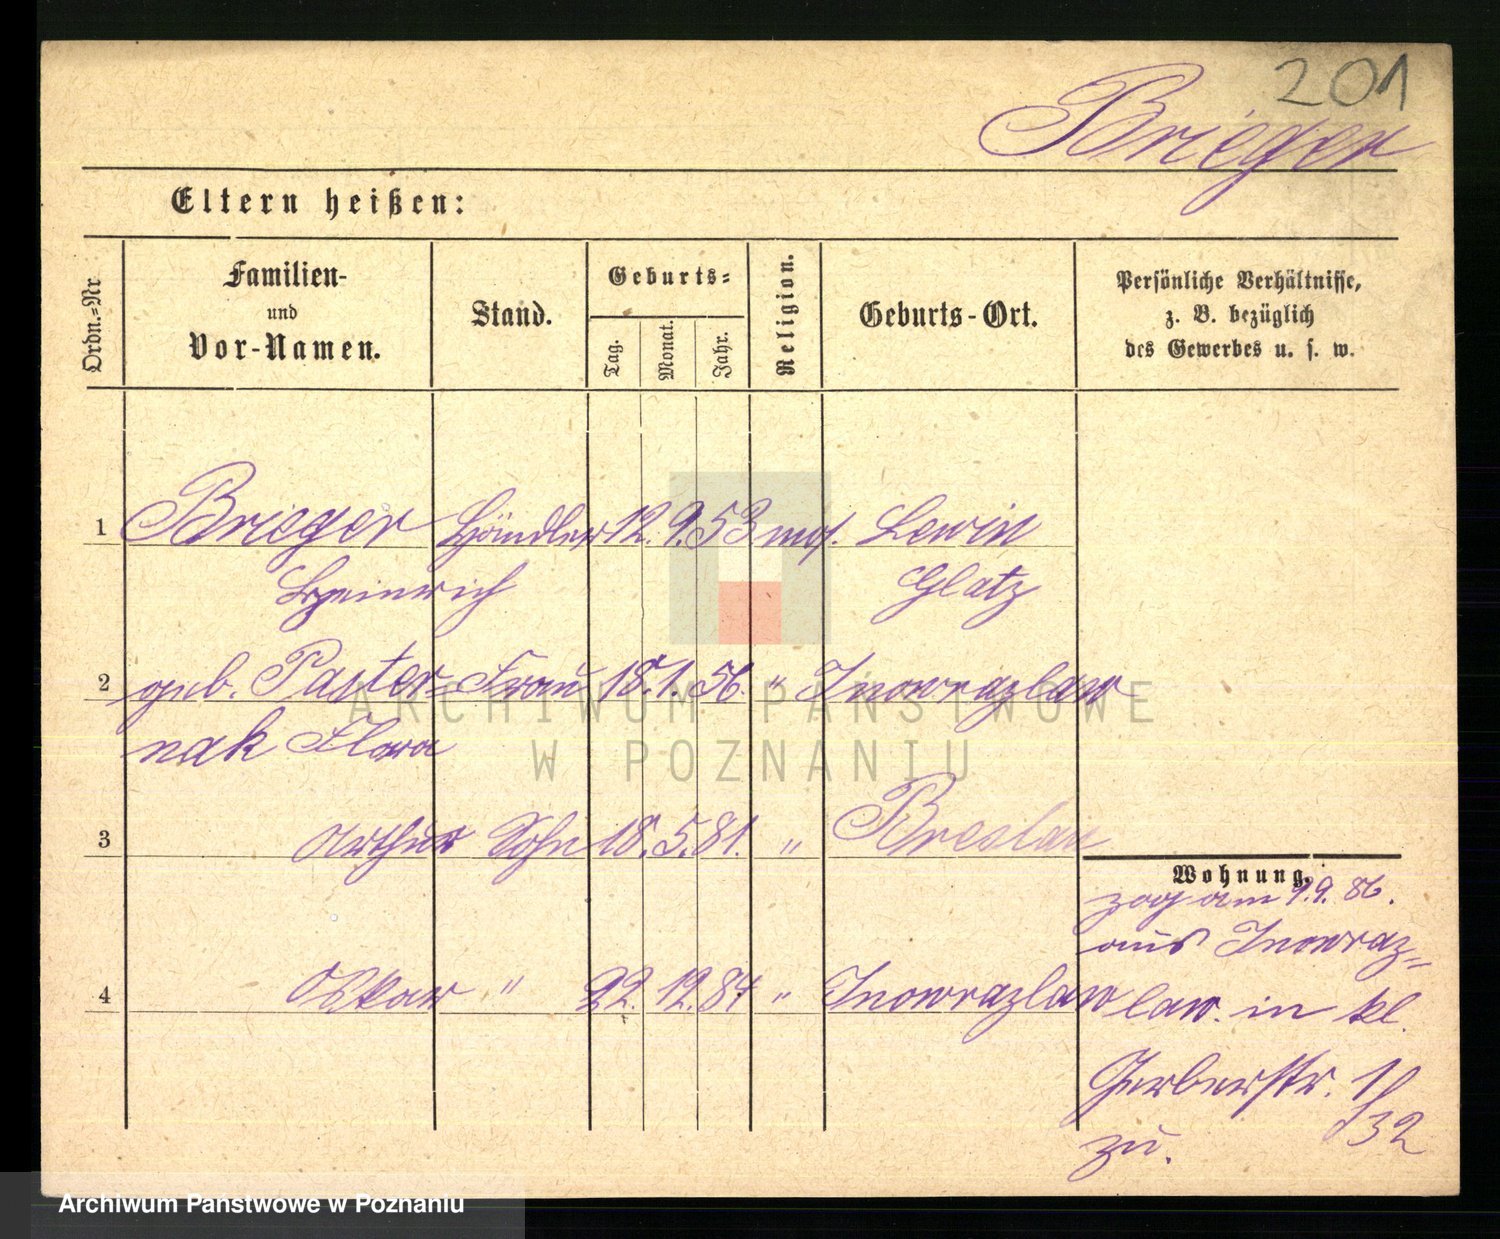 201
Brieger
Eltern heißen:
Ordn.-Nr
Familien-
und
Vor-Namen.
Stand.
Geburts-
Tag.
Monat.
Jahr.
Religion.
Geburts-Ort.
Persönliche Verhältnisse,
z. B. bezüglich
des Gewerbes u. s. w.
1 Brieger Händler 12. 9. 53 mos. Lewin
Heinrich Glatz
2 geb. Paster- Frau 18. 1. 56. " Inowrazlaw
nak Flora
3 Arthur Sohn 18. 5. 81. " Breslau
Wohnung.
zog am 9. 9. 86.
aus Inowraz-
4 Oskar " 22. 12. 84 " Inowrazlaw
law. in kl.
Gerberstr. 1/32
zu.
ARCHIWUM PAŃSTWOWE
W POZNANIU
Archiwum Państwowe w Poznaniu